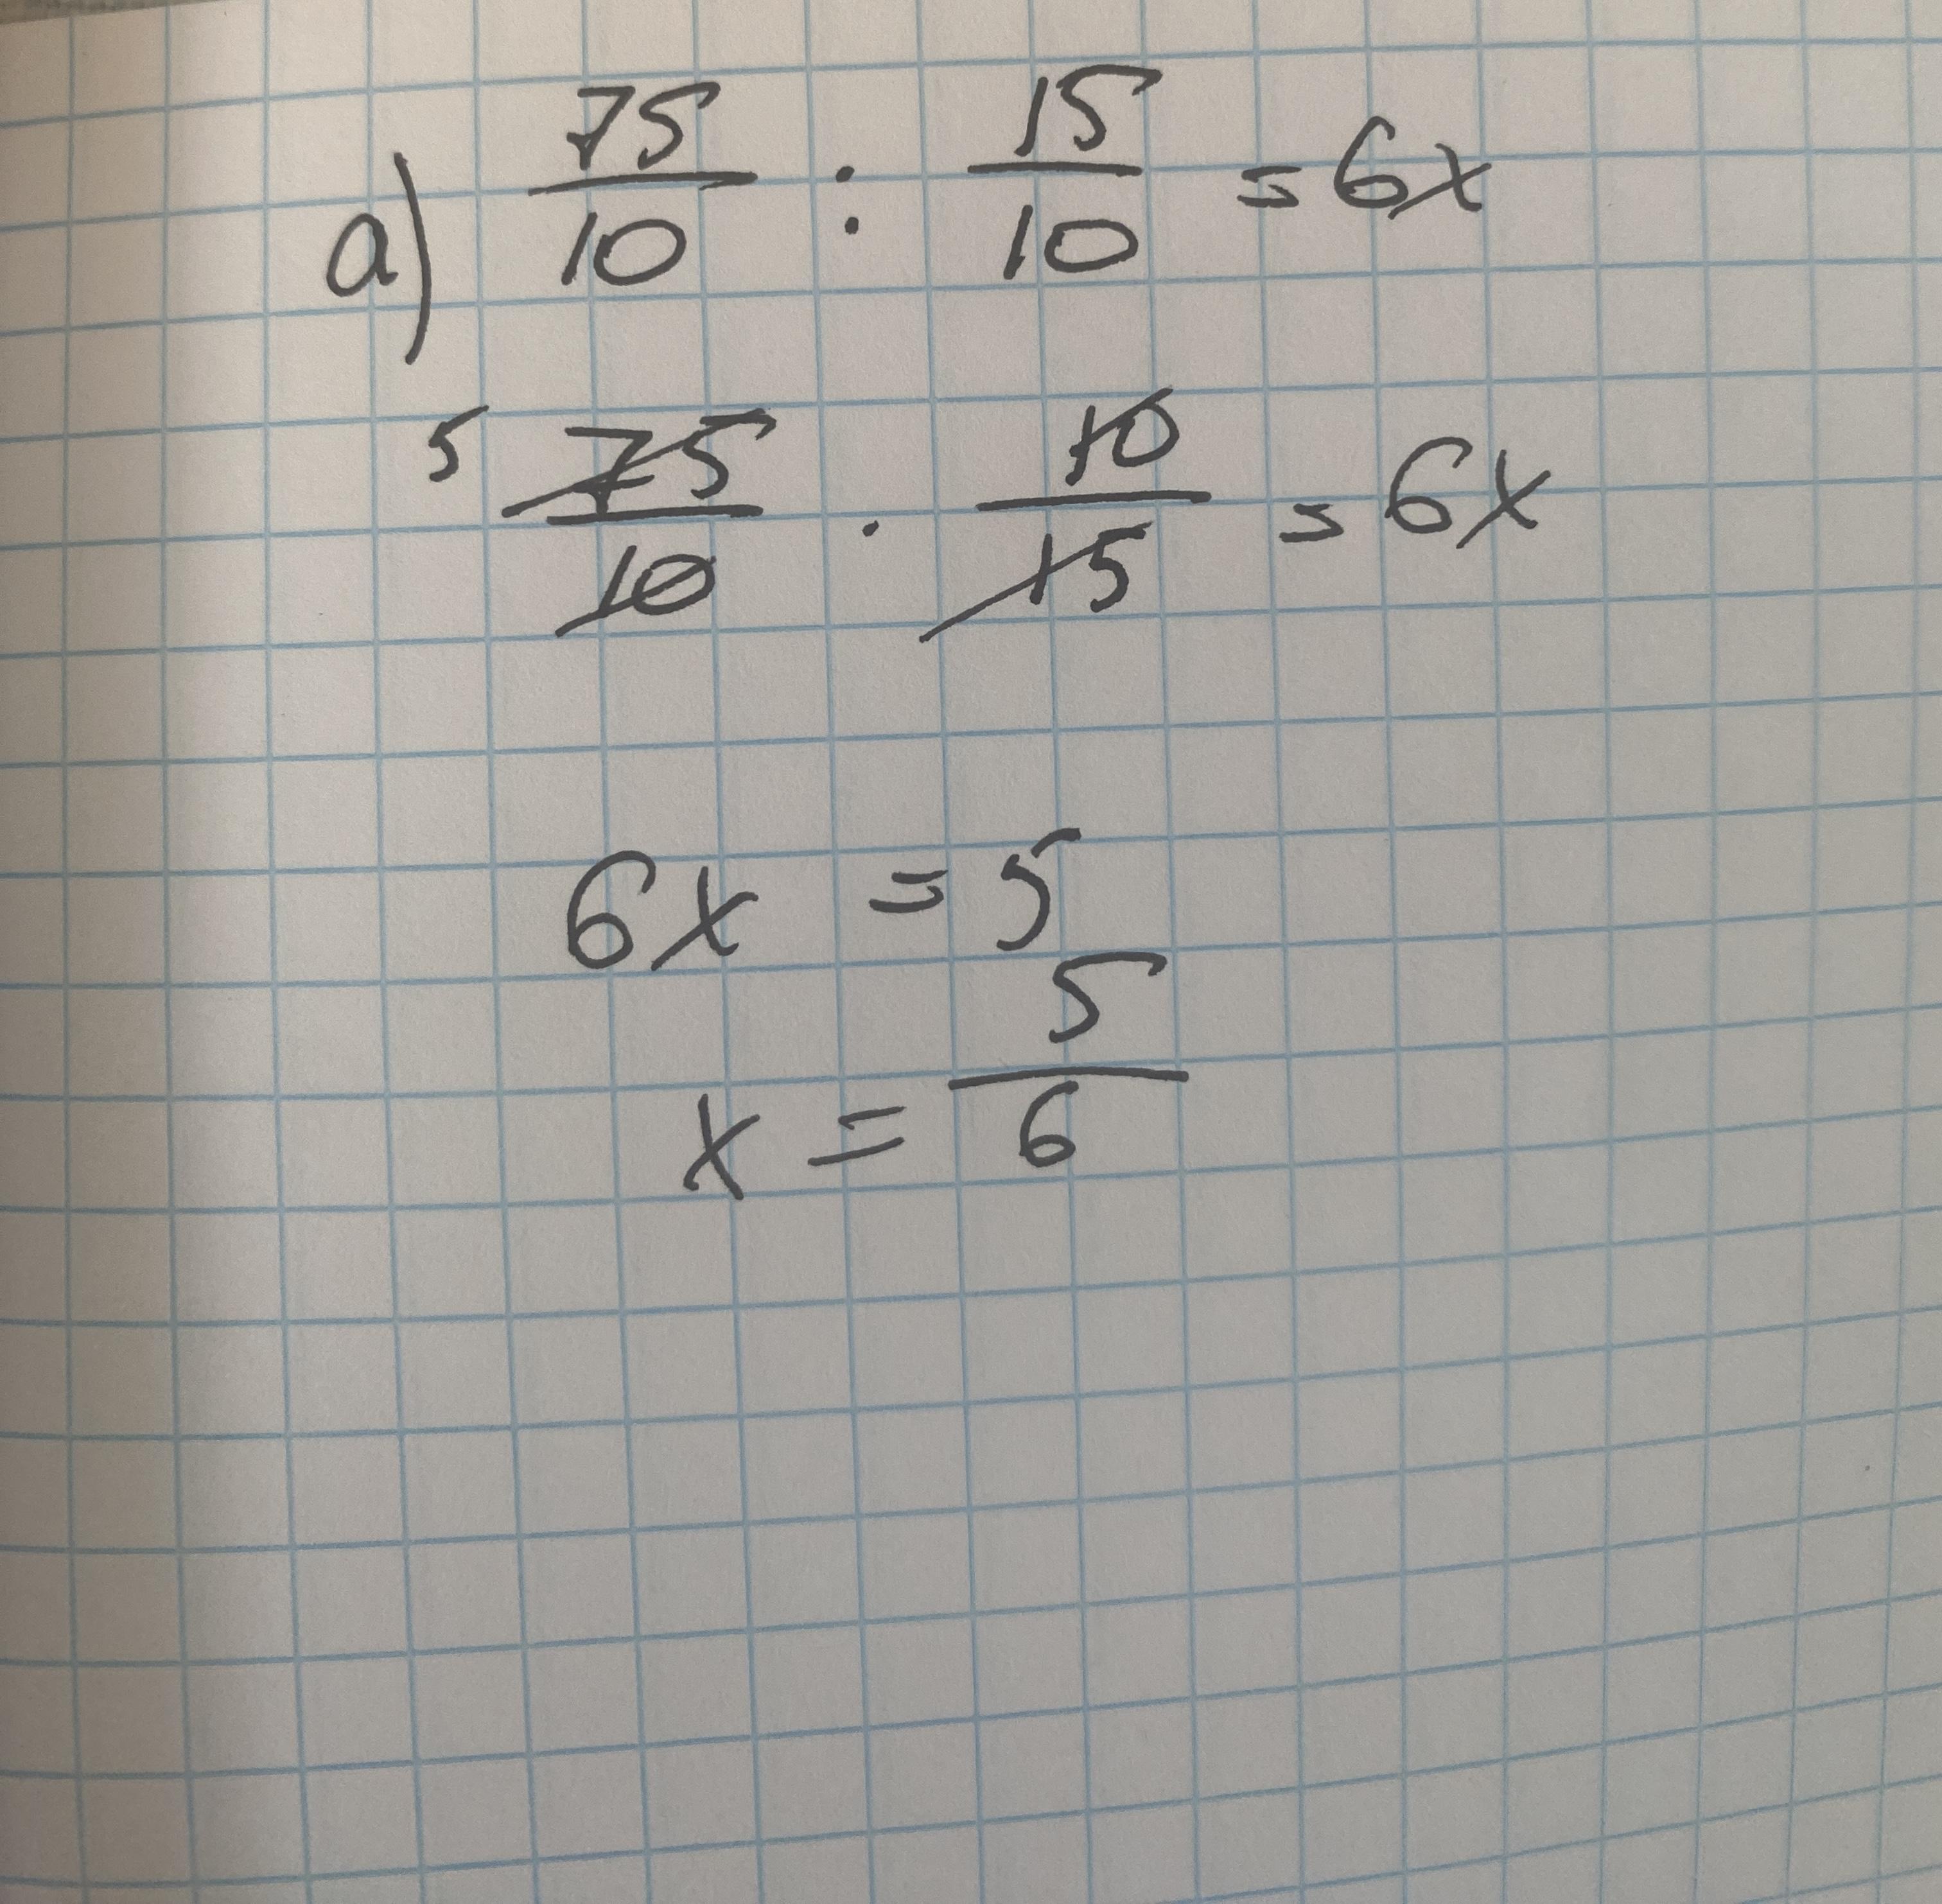 a) 75/10 : 15/10 = 6x
5 75/10 · 10/15 = 6x
6x = 5
x = 5/6